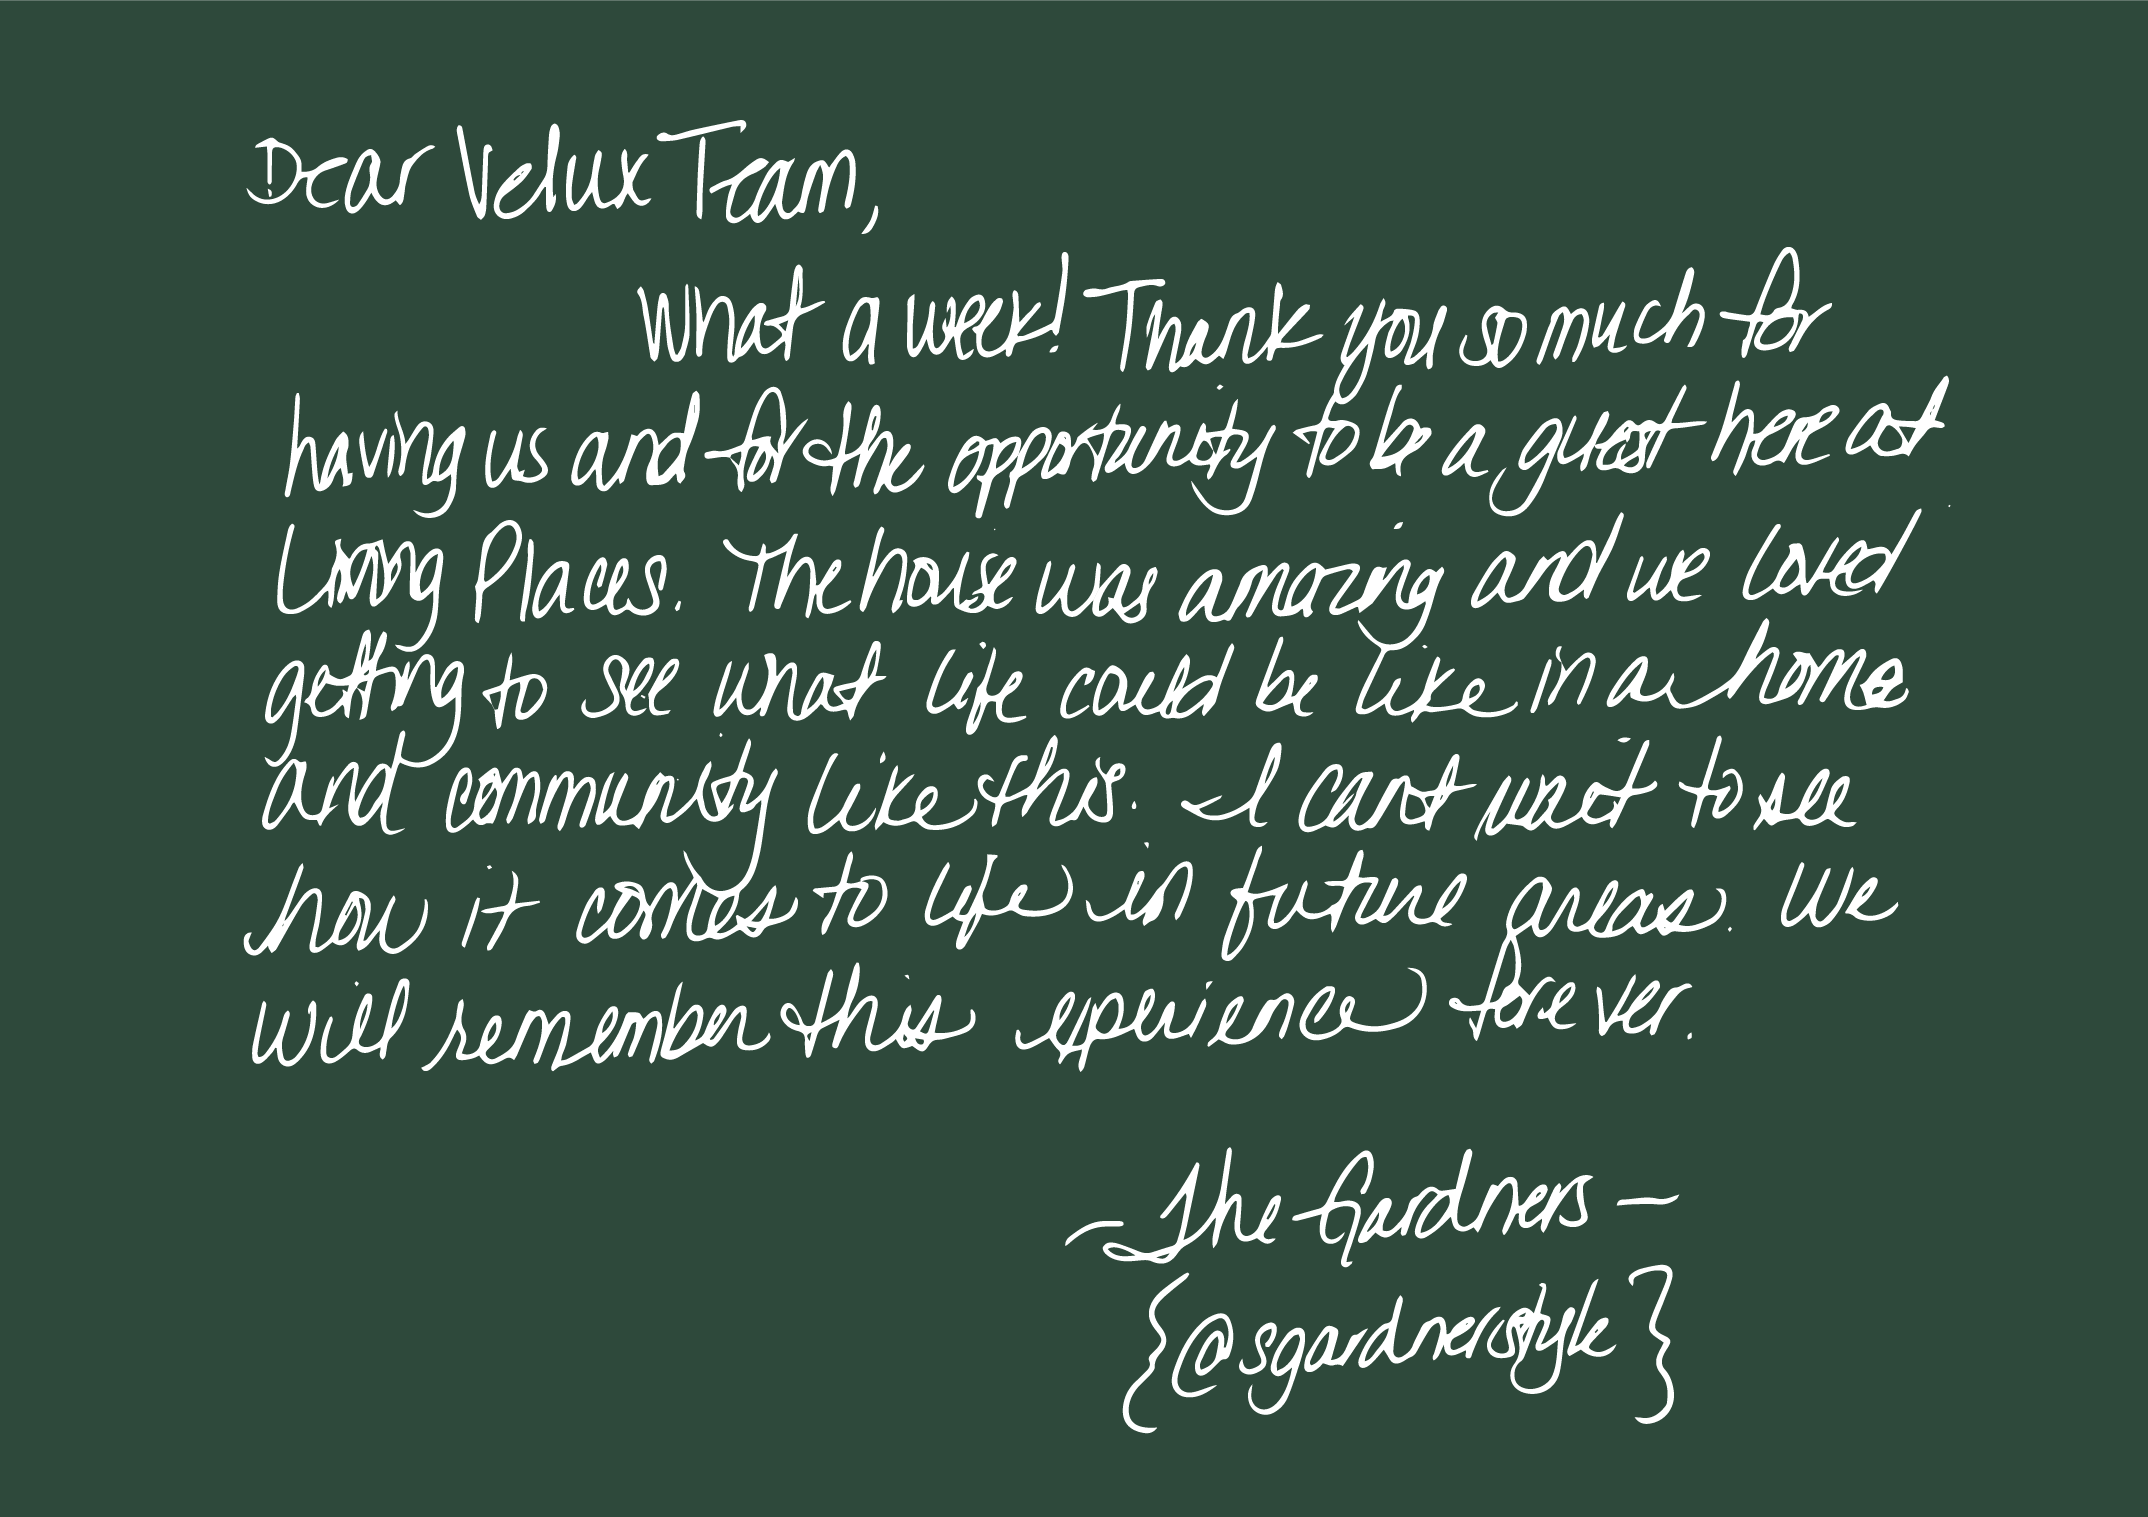 Dear Velux Team,
What a week! Thank you so much for
having us and for the opportunity to be a guest here at
Living Places. The house was amazing and we loved
getting to see what life could be like in a home
and community like this. I can't wait to see
how it comes to life in future areas. We
will remember this experience forever.
- The Gardners -
{@sgardnerstyle}